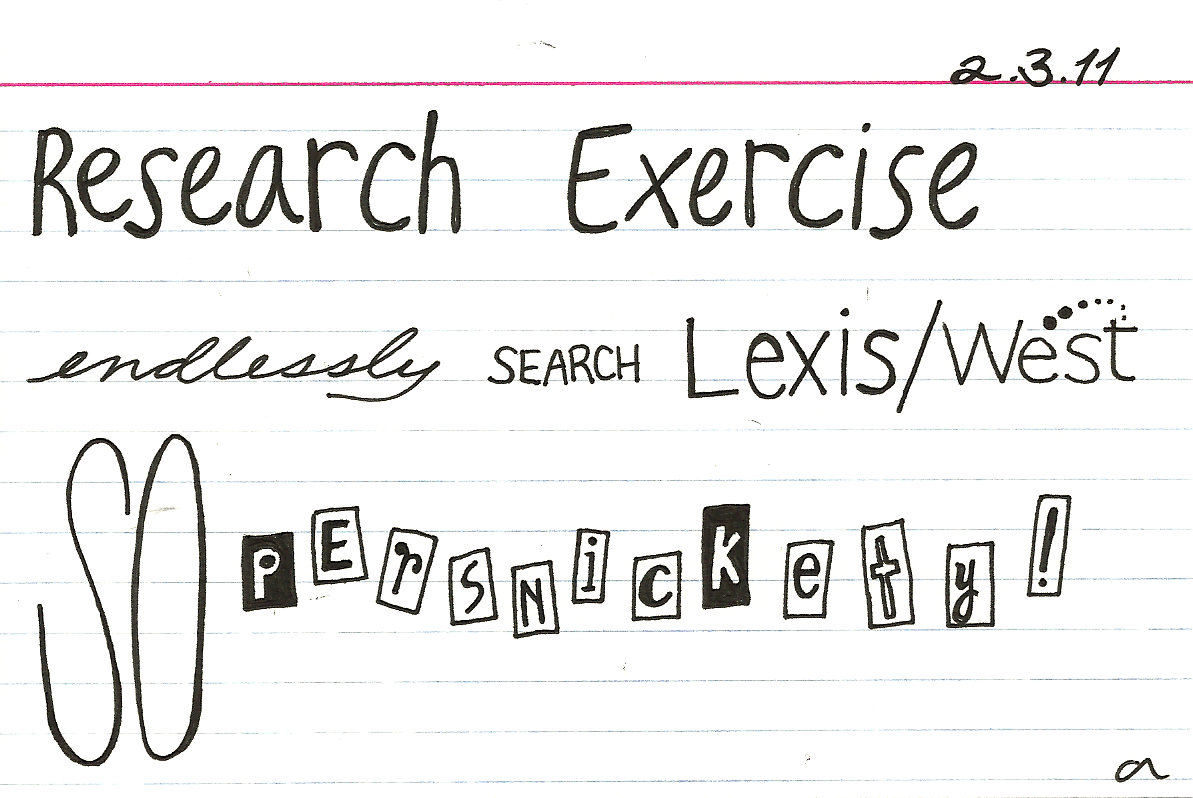 2.3.11
Research Exercise
endlessly SEARCH Lexis/West
SO PErsNicKety!
a